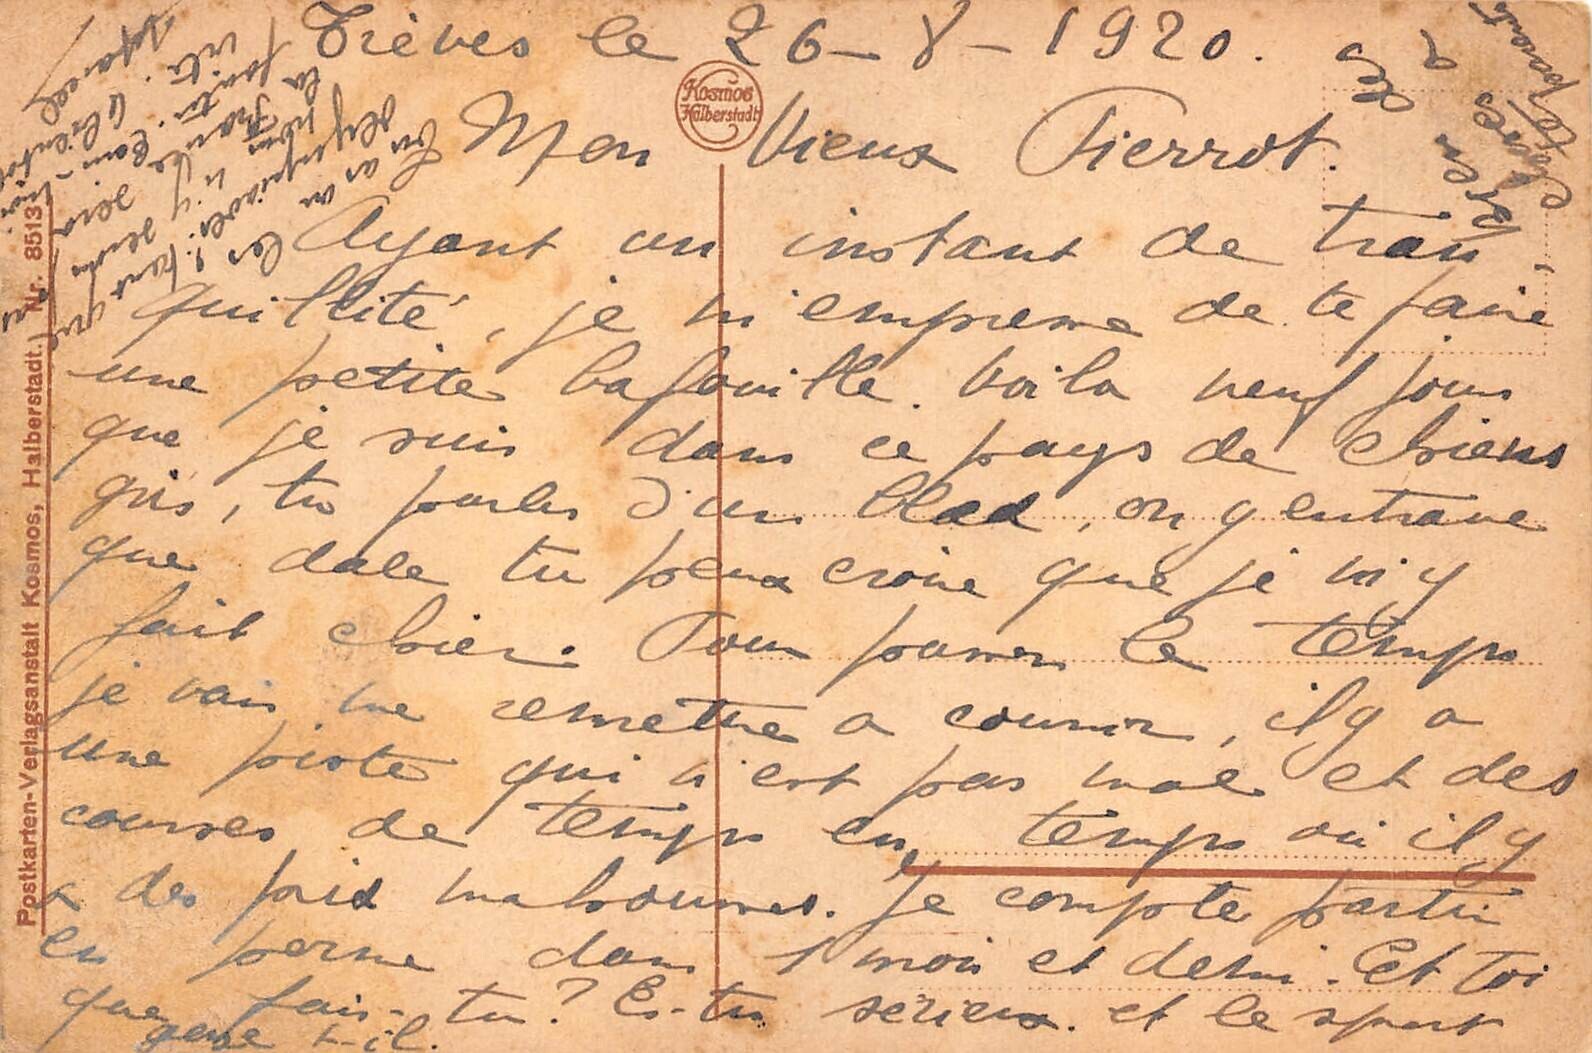 Trèves le 26-8-1920.
Kosmos
Halberstadt
Mon Vieux Pierrot.
Ayant un instant de tran-
quillité, je m'empresse de te faire
une petite bafouille. Voila neuf jours
que je suis dans ce pays de chiens
gris, tu parles d'un blad, on y entrave
que dale tu peux croire que je m'y
fait chier. Pour passer le temps
je vais me remettre a courir, il y a
une piste qui n'est pas mal et des
courses de temps en temps où il y
a des prix mahousses. Je compte partir
en perme dans 1 mois et demi. Et toi
que fais-tu? Es-tu sérieux. et le sport
gaze t-il.
Tu as vu les
olympiades.
la France n'y
Bien des
choses a
tes parents
Postkarten-Verlagsanstalt Kosmos, Halberstadt. Nr. 8513